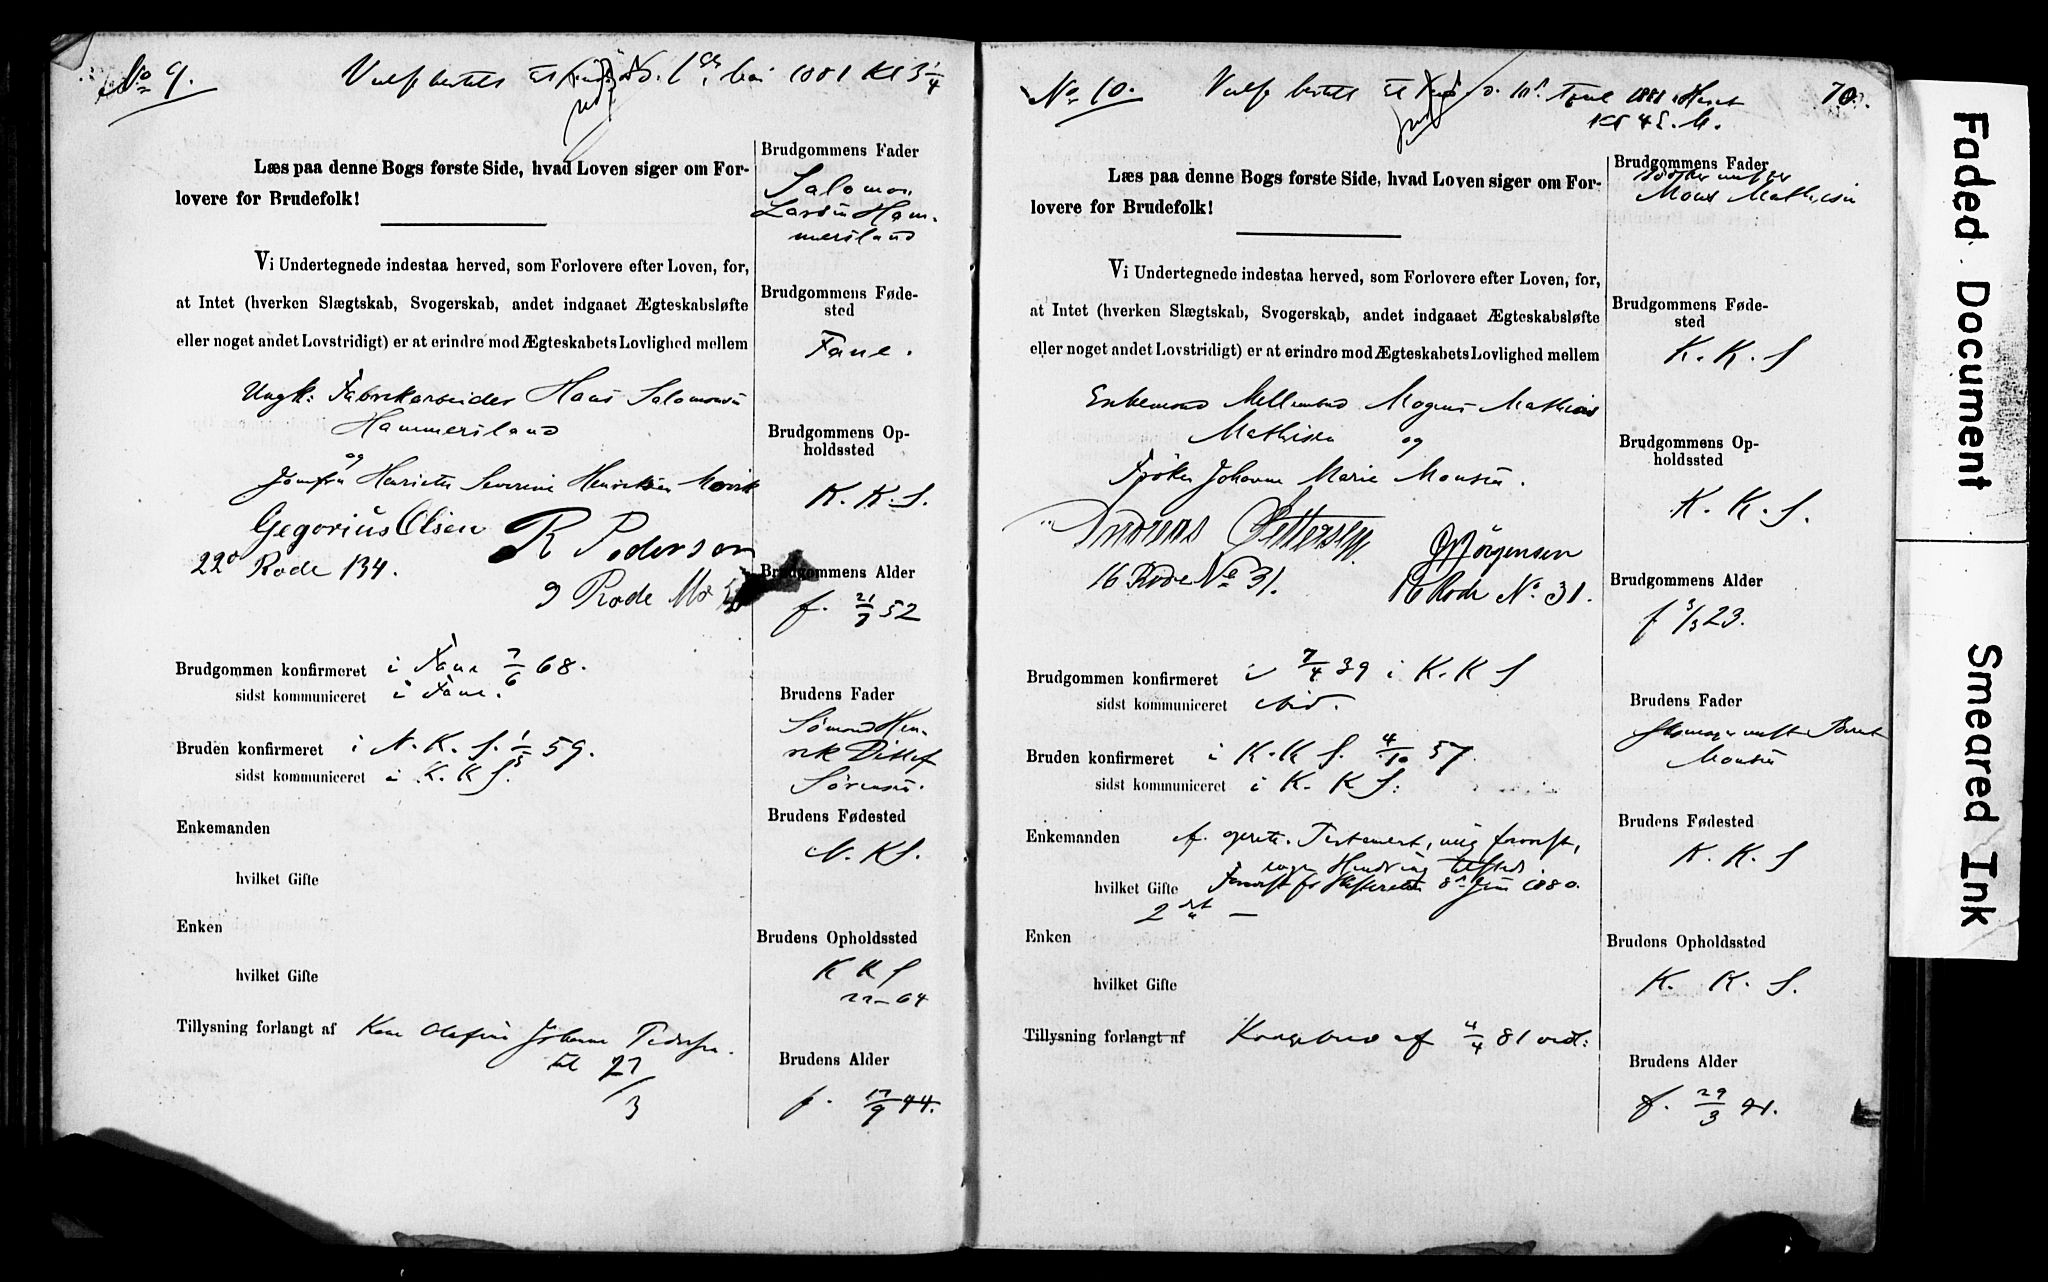 No 9.
1881 Kl 3 1/4
Læs paa denne Bogs første Side, hvad Loven siger om For-
lovere for Brudefolk!
Vi Undertegnede indestaa herved, som Forlovere efter Loven, for,
at Intet (hverken Slægtskab, Svogerskab, andet indgaaet Ægteskabsløfte
eller noget andet Lovstridigt) er at erindre mod Ægteskabets Lovlighed mellem
Ungk: Fabrikarbeider Hans Salomonsen
Hammersland
og
Jomfru Henriette Severine Henriksen
Gegorius Olsen R Pedersen
22de Rode 134.
9 Rode No
Brudgommen konfirmeret i Fane 7/6 68.
sidst kommuniceret i Fane.
Bruden konfirmeret i N. K. S. 1/5 59.
sidst kommuniceret i K. K S.
Enkemanden
hvilket Gifte
Enken
hvilket Gifte
Tillysning forlangt af Kone Johanne Pedersen.
27/3
Brudgommens Fader
Salomon
Larsen Ham-
mersland
Brudgommens Føde-
sted
Fane.
Brudgommens Op-
holdssted
K. K. S.
Brudgommens Alder
f. 21/7 52
Brudens Fader
Sømand Hen-
rik Ditlef
Sørensen.
Brudens Fødested
N. K S.
Brudens Opholdssted
K K S
22-64
Brudens Alder
f. 17/9 44.
No 10.
1881
Kl 4 E. M.
70.
Læs paa denne Bogs første Side, hvad Loven siger om For-
lovere for Brudefolk!
Vi Undertegnede indestaa herved, som Forlovere efter Loven, for,
at Intet (hverken Slægtskab, Svogerskab, andet indgaaet Ægteskabsløfte
eller noget andet Lovstridigt) er at erindre mod Ægteskabets Lovlighed mellem
Enkemand Mogens Mathias
Mathisen og
Frøken Johanne Marie Monsen.
Andreas Pettersen Jørgensen
16 Rode No 31. 16 Rode No 31.
Brudgommen konfirmeret 7/4 39 i K. K S
sidst kommuniceret ibid.
Bruden konfirmeret i K. K S. 4/10 57.
sidst kommuniceret i K. K S.
Enkemanden Testament,
hvilket Gifte 8de Juni 1880.
2det
Enken
hvilket Gifte
Tillysning forlangt af Kongebrev af 4/4 81
Brudgommens Fader
Mons Mathisen
Brudgommens Føde-
sted
K. K. S
Brudgommens Op-
holdssted
K. K. S.
Brudgommens Alder
f 3/3 23.
Brudens Fader
Monsen
Brudens Fødested
K. K. S
Brudens Opholdssted
K. K. S.
Brudens Alder
f. 29/3 41.
Faded Document
Smeared Ink